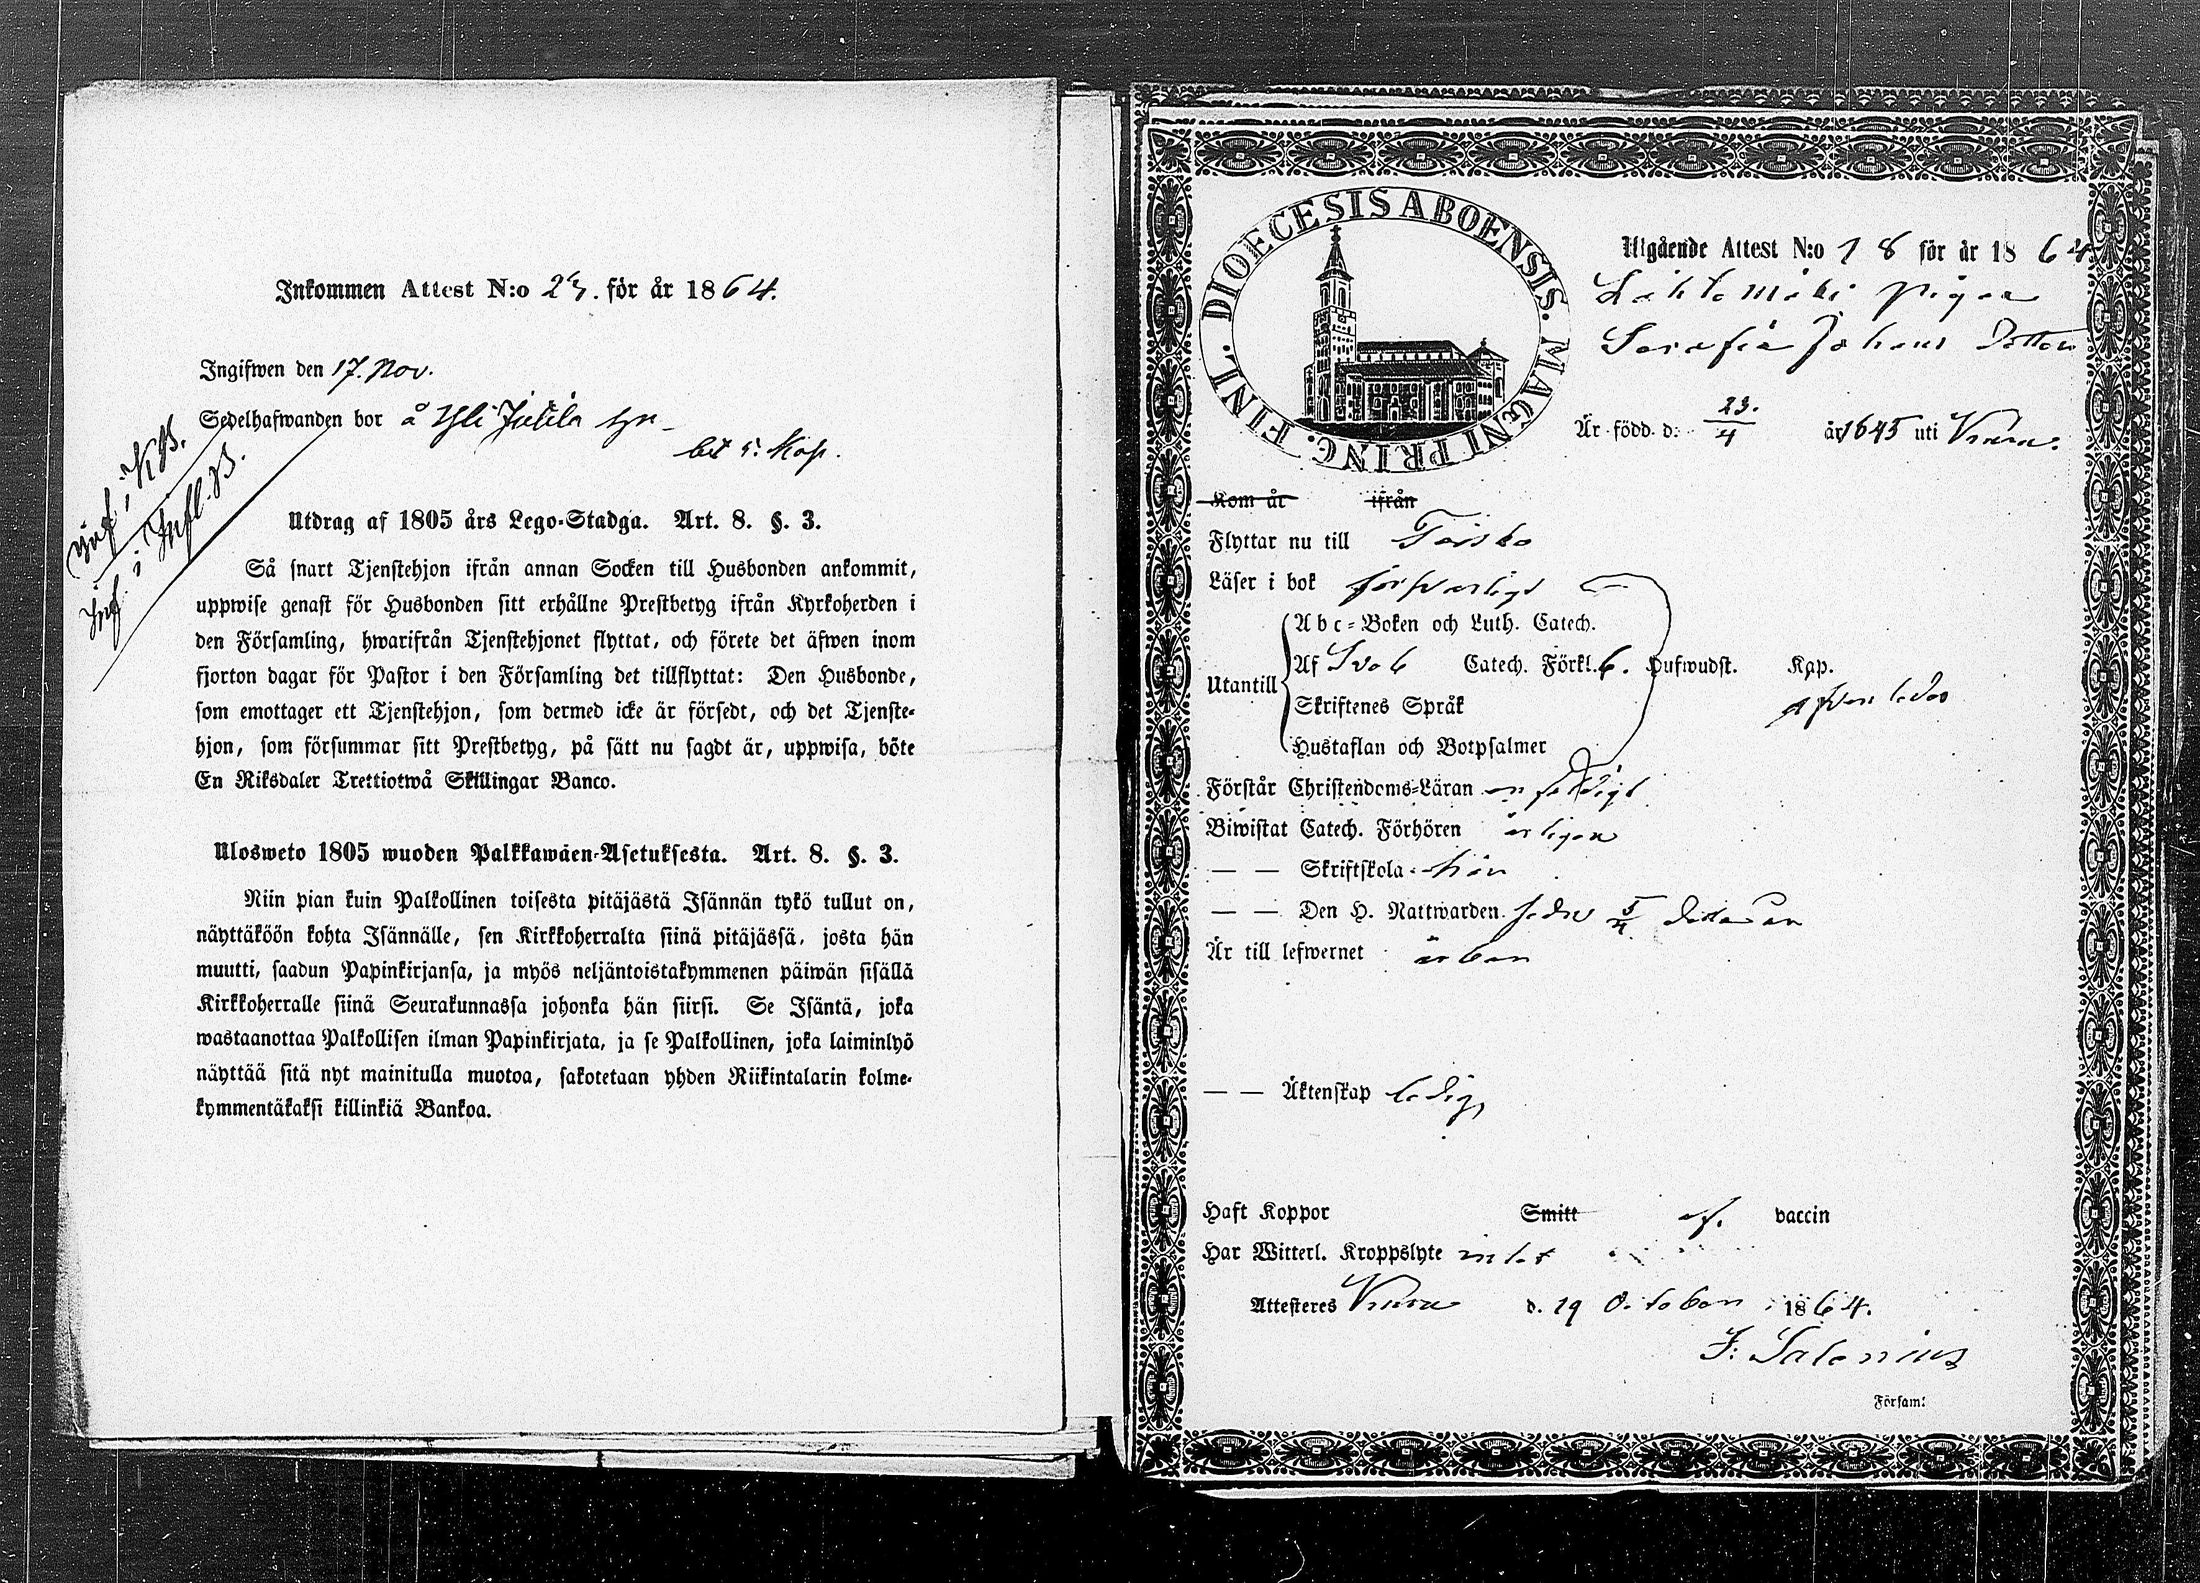 Inkommen Attest N:o 23. för år 1864.
Ingifwen den 17. Nov.
Sedelhafwanden bor å Yli Juttila
bet 5: Kop.
inf. i KB.
inf. i Infl. B.
Utdrag af 1805 års Lego-Stadga. Art. 8. §. 3.
Så snart Tjenstehjon ifrån annan Socken till Husbonden ankommit,
uppwise genast för Husbonden sitt erhållne Prestbetyg ifrån Kyrkoherden i
den Församling, hwarifrån Tjenstehjonet flyttat, och förete det äfwen inom
fjorton dagar för Pastor i den Församling det tillflyttat: Den Husbonde,
som emottager ett Tjenstehjon, som dermed icke är försedt, och det Tjenste-
hjon, som försummar sitt Prestbetyg, på sätt nu sagdt är, uppwisa, böte
En Riksdaler Trettiotwå Skillingar Banco.
Ulosweto 1805 wuoden Palkkawäen-Asetuksesta. Art. 8. §. 3.
Niin pian kuin Palkollinen toisesta pitäjästä Isännän tykö tullut on,
näyttäköön kohta Isännälle, sen Kirkkoherralta siinä pitäjässä, josta hän
muutti, saadun Papinkirjansa, ja myös neljäntoistakymmenen päiwän sisällä
Kirkkoherralle siinä Seurakunnassa johonka hän siirsi. Se Isäntä, joka
wastaanottaa Palkollisen ilman Papinkirjata, ja se Palkollinen, joka laiminlyö
näyttää sitä nyt mainitulla muotoa, sakotetaan yhden Riikintalarin kolme-
kymmentäkaksi killinkiä Bankoa.
DIOECESIS ABOENSIS. MAGNI PRINC. FINL.
Utgående Attest N:o 18 för år 1864
Lahtomäki pigan
Serafia Johans Dotter
Är född d: 23./4 år 1845 uti Kuru.
Kom år ifrån
Flyttar nu till Teisko
Läser i bok försvarligt
Utantill
Abc-Boken och Luth. Catech.
Af Sveb Catech. Förkl. 6. Hufwudst. Kap.
Skriftenes Språk
Hustaflan och Botpsalmer
Förstår Christendoms-Läran enfaldigt
Biwistat Catech. Förhören årligen
— — Skriftskola här
— — Den H. Nattwarden sedn 5/4
Är till lefwernet ärbar
— — Äktenskap ledig
Haft Koppor Smitt af vaccin
Har Witterl. Kroppslyte intet
Attesteres Kuru d. 19 October 1864.
F: Salenius
Försam: